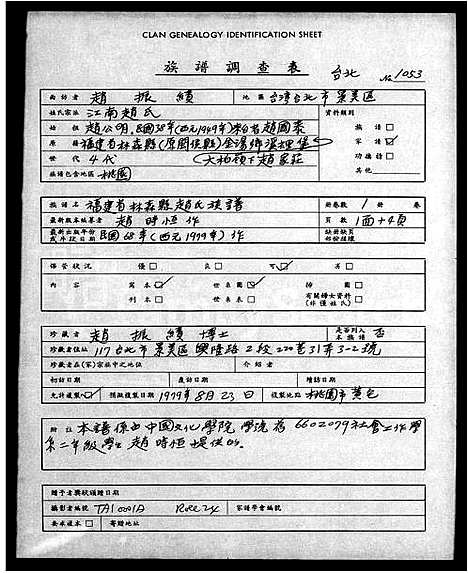 CLAN GENEALOGY IDENTIFICATION SHEET
族譜調查表 台北 No 1053
面訪者 趙振績 地區 台灣台北市景美區
姓氏宗派 江南趙氏 資料類別
始祖 趙公明,民國38年(西元1949年)來台者趙國泰 族譜□
原籍 福建省林森縣(原閩侯縣)金湯鄉溪裡堡 家譜☑
世代 4代 (大柏嶺下趙家莊) 功德諱□
族譜包含地區 桃園 其他
族譜名 福建省林森縣趙氏族譜 冊卷數 1冊 卷
最新版本編著者 趙時恒作 頁數 1面+4頁
最新出版年份或片段日期 民國68年(西元1979年)作 缺冊缺頁
保管狀況 優□ 良□ 可☑ 劣□
內容 寫本☑ 世系圖☑ 插圖□
刊本□ 世系表□ 有關婦女資料(非僅姓氏)□
珍藏者 趙振績博士 是否列入本族譜 否
珍藏者住址 117台北市景美區興隆路2段220巷31弄3-2號
珍藏者在(家)宗族中之地位 介紹者
初訪日期 覆訪日期 續訪日期
允許複製☑ 預擬複製日期 1979年8月23日 複製地點 桃園市黃宅
附註 本譜係由中國文化學院 學號為6602079社會工作學
系二年級學生趙時恒提供的。
贈予者獎狀頒贈日期
攝影者編號 TA10001A Roll 24 家譜學會編號
要求複本□ 寄贈地址